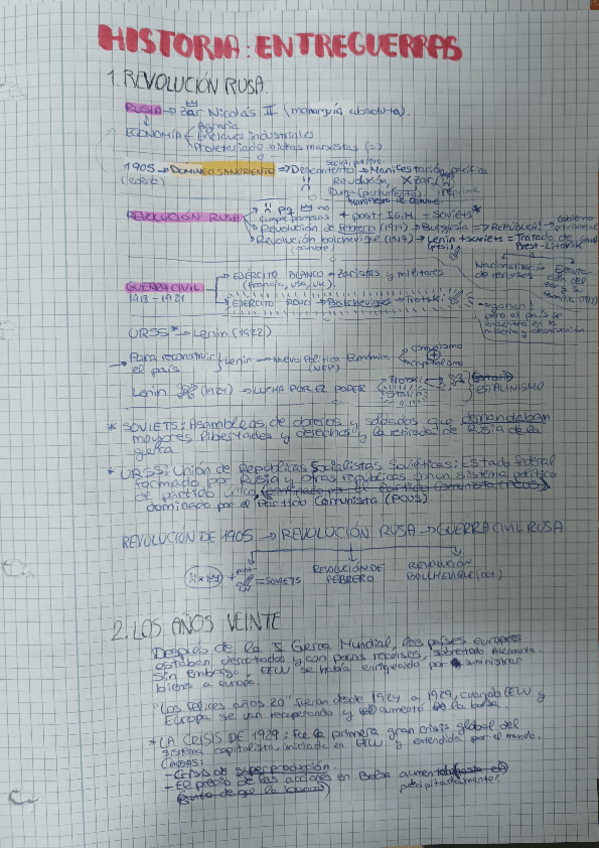 HISTORIA: ENTREGUERRAS
1. REVOLUCIÓN RUSA.
RUSIA → Zar Nicolás II (monarquía absoluta).
ECONOMÍA
Agraria
Enclaves industriales
Proletariado → ideas marxistas
1905 → DOMINGO SANGRIENTO ⇒ Descontento → Manifestación pacífica
Revolución, X zar
Duma
REVOLUCIÓN RUSA
pq no
cumple promesas + post - I.G.M. = Soviets*
Revolución de febrero (1917) → Burguesía → ¡REPÚBLICA! → Gobierno
Revolución bolchevique (1917) → Lenin + soviets = Tratado de
Brest-Litovsk
Nacionalización
de recursos
GUERRA CIVIL
1918 - 1921
EJÉRCITO BLANCO → Zaristas y militares
(Francia, USA, UK).
EJÉRCITO ROJO → Bolcheviques → Trotski
→ ¡ganan!
pero el país se
encuentra en la
miseria y destrucción
URSS* → Lenin (1922)
→ Para reconstruir
el país
Lenin → Nueva Política Económica
(NEP)
comunismo
+
capitalismo
Lenin (1924) → LUCHA POR EL PODER
Trotski
Stalin
ESTALINISMO
* SOVIETS: Asambleas de obreros y soldados que demandaban
mayores libertades y derechos y la retirada de Rusia de la
guerra.
* URSS: Unión de Repúblicas Socialistas Soviéticas: Estado federal
formado por Rusia y otras repúblicas con un sistema político
de partido único,
dominado por el Partido Comunista (PCUS).
REVOLUCIÓN DE 1905 → REVOLUCIÓN RUSA → GUERRA CIVIL RUSA
= SOVIETS
REVOLUCIÓN DE
FEBRERO
REVOLUCIÓN
BOLCHEVIQUE (oct)
2. LOS AÑOS VEINTE
Después de la I Guerra Mundial, los países europeos
estaban derrotados y con pocos recursos, sobretodo Alemania.
Sin embargo, EEUU se había enriquecido por suministrar
bienes a europa.
"Los felices años 20" fueron desde 1924 a 1929, cuando EEUU y
Europa se van recuperando y aumentó la bolsa.
* LA CRISIS DE 1929: Fue la primera gran crisis global del
sistema capitalista, iniciada en EEUU y extendida por el mundo.
Causas:
- Crisis de superproducción.
- El precio de las acciones en Bolsa aumentaba
precipitadamente.